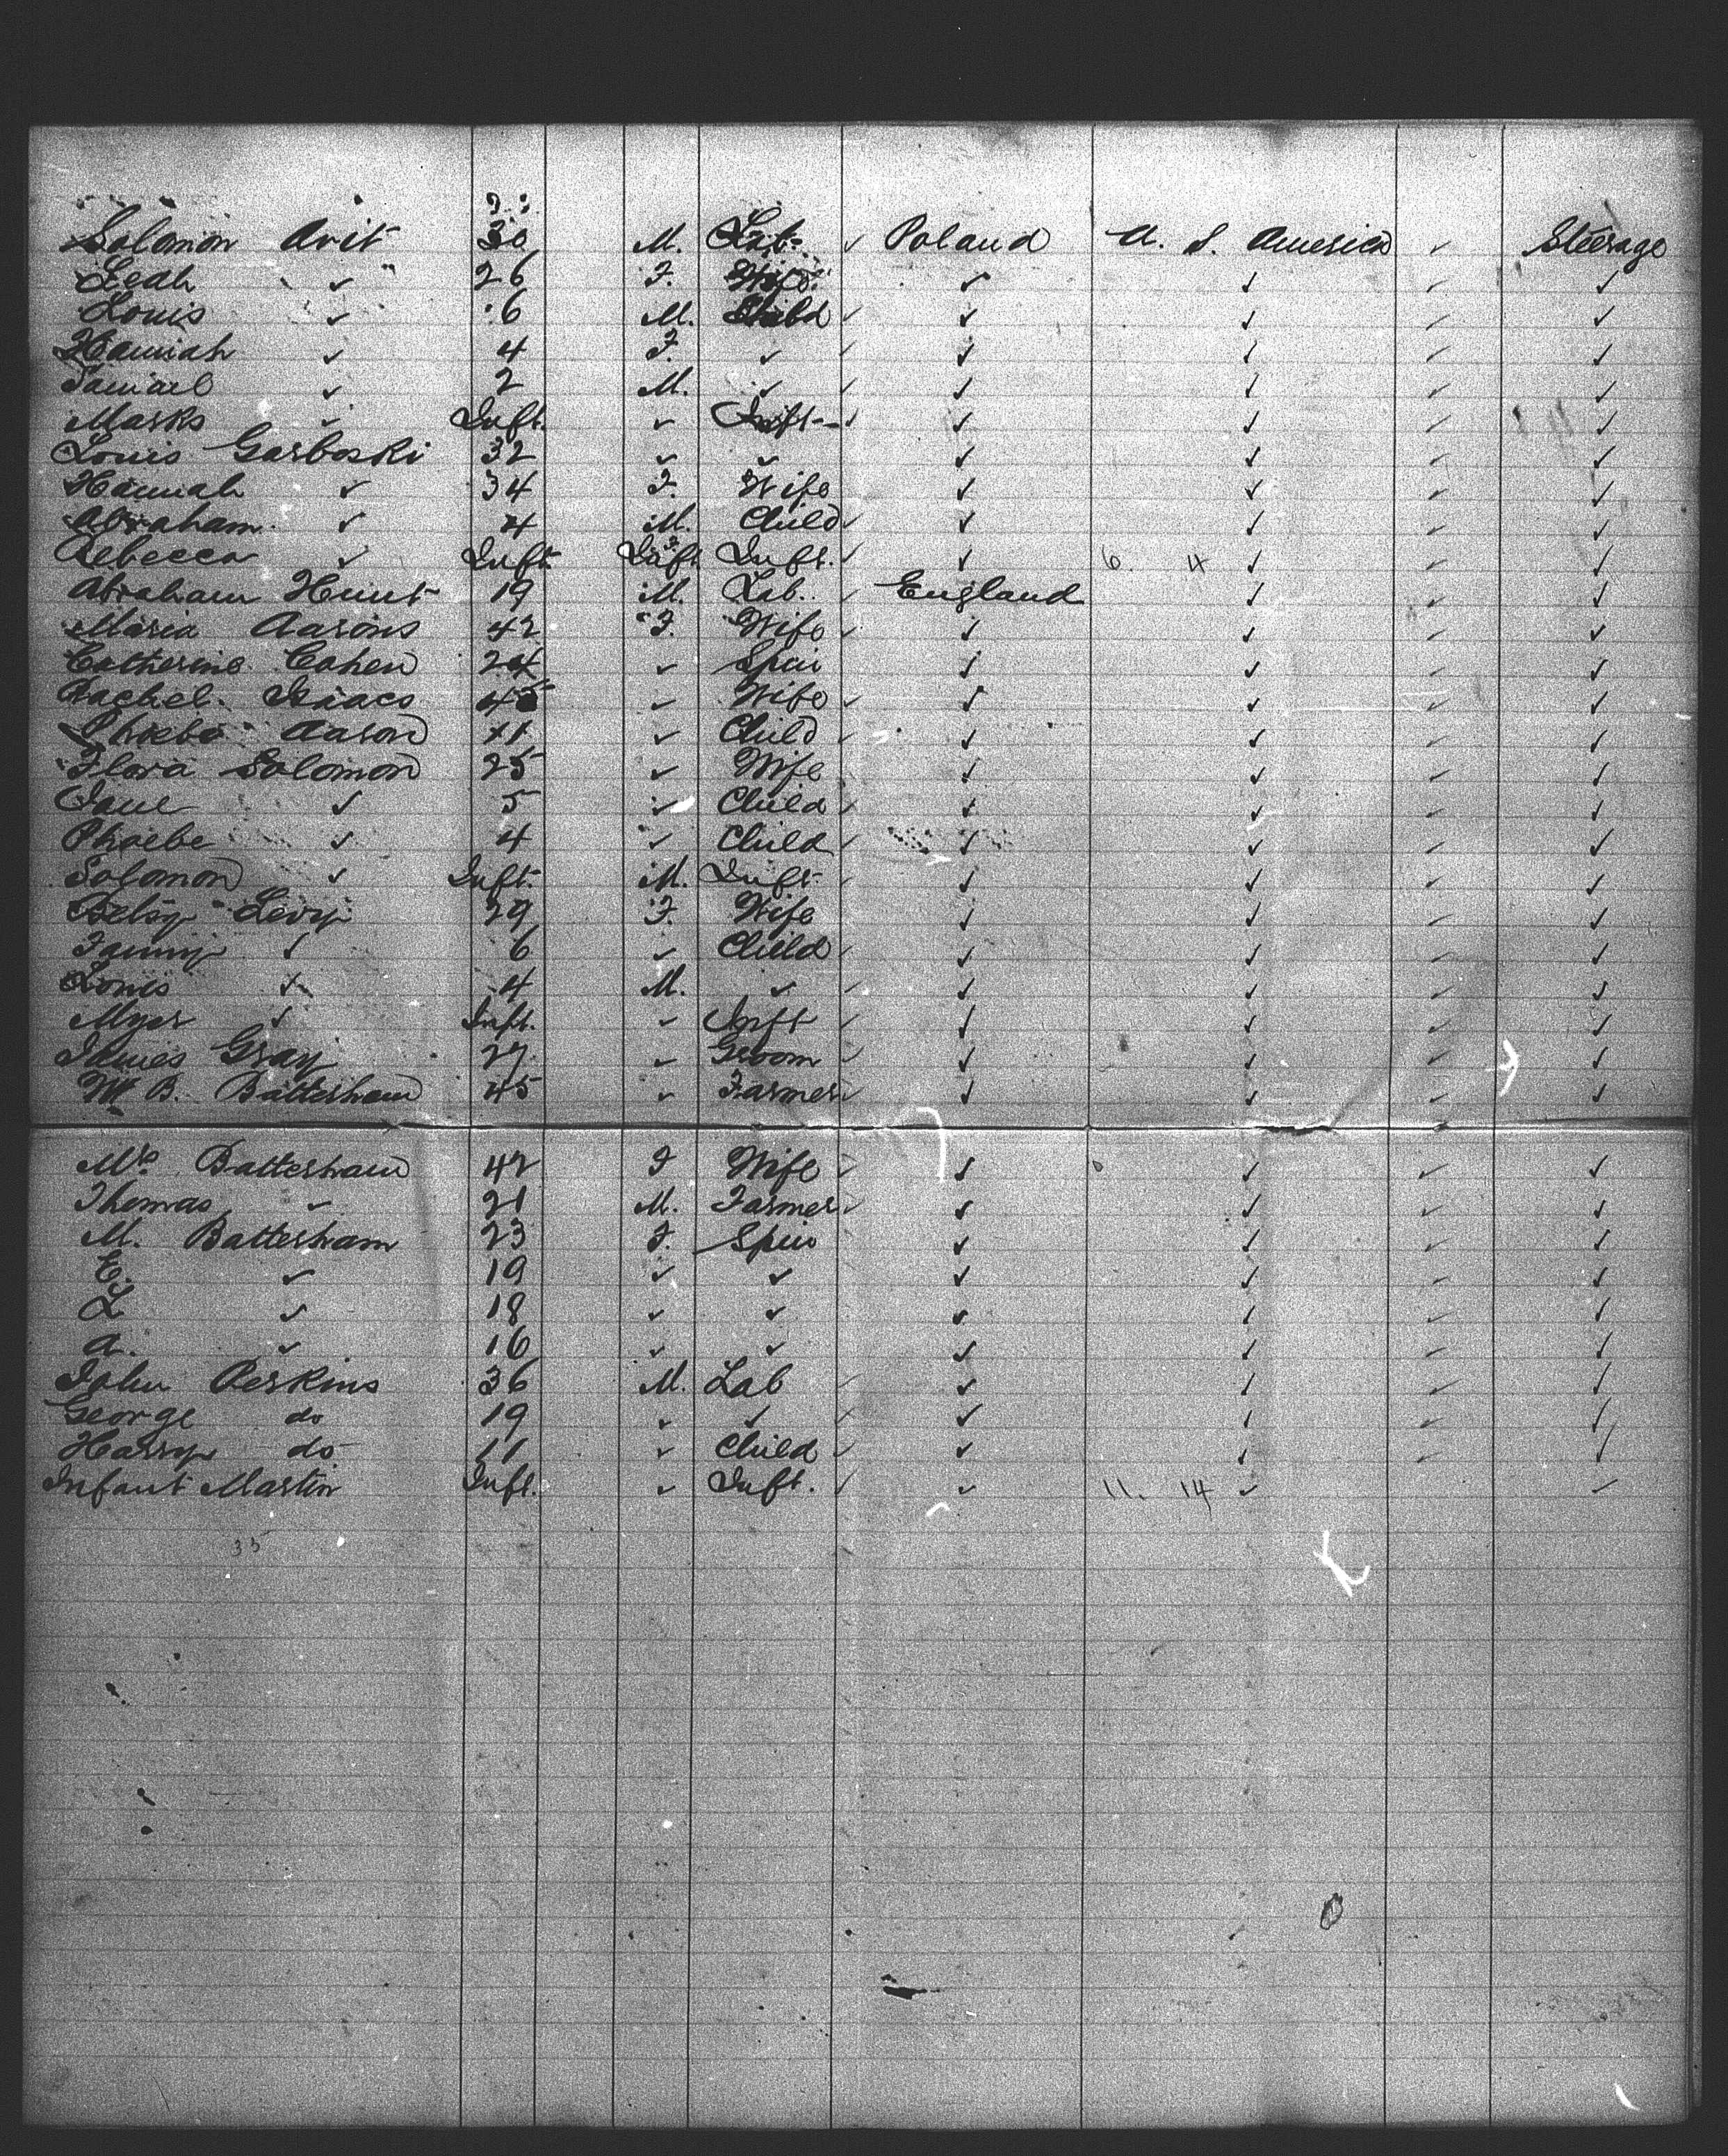 Solomon Avit 30 M. Lab. ✓ Poland U. S. America ✓ Steerage
Leah ✓ 26 F. Wife ✓ ✓ ✓ ✓
Louis ✓ 6 M. Child ✓ ✓ ✓ ✓ ✓
Hannah ✓ 4 F. ✓ ✓ ✓ ✓ ✓ ✓
Samuel ✓ 2 M. ✓ ✓ ✓ ✓ ✓ ✓
Marks ✓ Inft. ✓ Inft ✓ ✓ ✓ ✓ ✓
Louis Garboski 32 ✓ ✓ ✓ ✓ ✓ ✓
Hannah ✓ 34 F. Wife ✓ ✓ ✓ ✓
Abraham ✓ 4 M. Child ✓ ✓ ✓ ✓ ✓
Rebecca ✓ Inft. Inft. Inft. ✓ ✓ 6. 4 ✓ ✓ ✓
Abraham Hunt 19 M. Lab. ✓ England ✓ ✓ ✓
Maria Aarons 42 F. Wife ✓ ✓ ✓ ✓ ✓
Catherine Cohen 24 ✓ Spin ✓ ✓ ✓ ✓
Rachel Isaacs 45 ✓ Wife ✓ ✓ ✓ ✓ ✓
Phoebe Aason 11 ✓ Child ✓ ✓ ✓ ✓ ✓
Flora Solomon 25 ✓ Wife ✓ ✓ ✓ ✓
Jane ✓ 5 ✓ Child ✓ ✓ ✓ ✓ ✓
Phoebe ✓ 4 ✓ Child ✓ ✓ ✓ ✓ ✓
Solomon ✓ Inft. M. Inft. ✓ ✓ ✓ ✓ ✓
Betsy Levy 29 F. Wife ✓ ✓ ✓ ✓
Fanny ✓ 6 ✓ Child ✓ ✓ ✓ ✓ ✓
Louis ✓ 4 M. ✓ ✓ ✓ ✓ ✓ ✓
Myer ✓ Inft. ✓ Inft ✓ ✓ ✓ ✓ ✓
James Gray 27 ✓ Groom ✓ ✓ ✓ ✓ ✓
W B. Battersham 45 ✓ Farmer ✓ ✓ ✓ ✓ ✓
Mrs Battersham 42 F Wife ✓ ✓ ✓ ✓ ✓
Thomas ✓ 21 M. Farmer ✓ ✓ ✓ ✓ ✓
M. Battersham 23 F. Spin ✓ ✓ ✓ ✓
E. ✓ 19 ✓ ✓ ✓ ✓ ✓ ✓
L ✓ 18 ✓ ✓ ✓ ✓ ✓ ✓
A. ✓ 16 ✓ ✓ ✓ ✓ ✓ ✓
John Perkins 36 M. Lab ✓ ✓ ✓ ✓ ✓
George do 19 ✓ ✓ ✓ ✓ ✓ ✓ ✓
Harry do 11 ✓ Child ✓ ✓ ✓ ✓
Infant Martin Inft. ✓ Inft. ✓ ✓ 11. 14 ✓ ✓
35